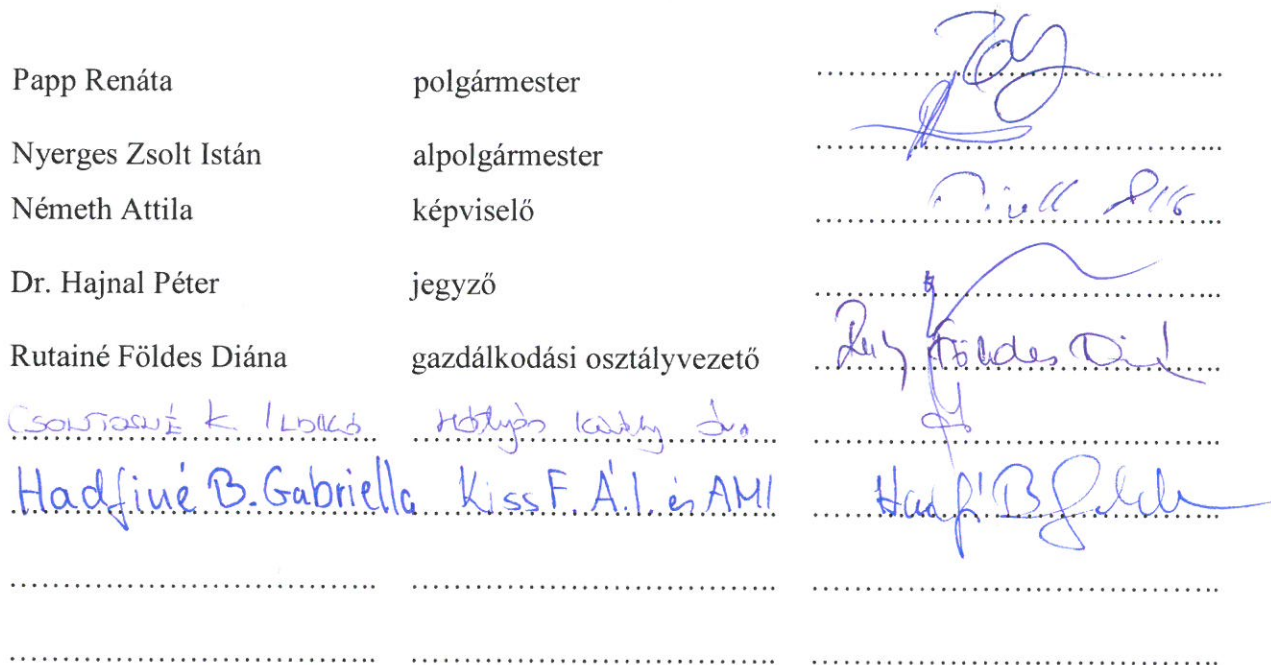 Papp Renáta polgármester
Nyerges Zsolt István alpolgármester
Németh Attila képviselő
Dr. Hajnal Péter jegyző
Rutainé Földes Diána gazdálkodási osztályvezető Földes
Csontosné K. Ildikó Mátyás Király
Hadfiné B. Gabriella Kiss F. Á.I. és AMI